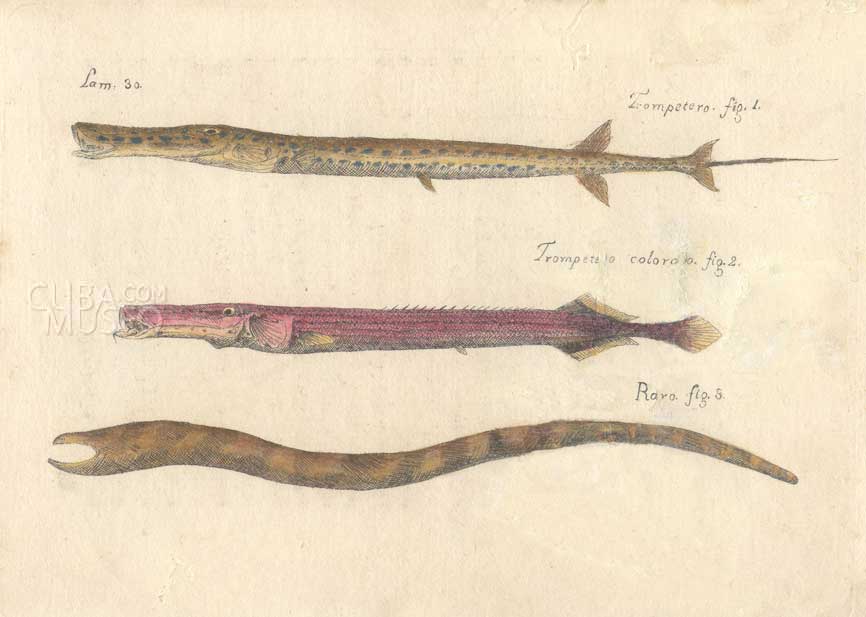 Lam. 30.
Trompetero. fig. 1.
Trompetero colorado. fig. 2.
CUBA
MUSEO
.COM
Raro. fig. 3.